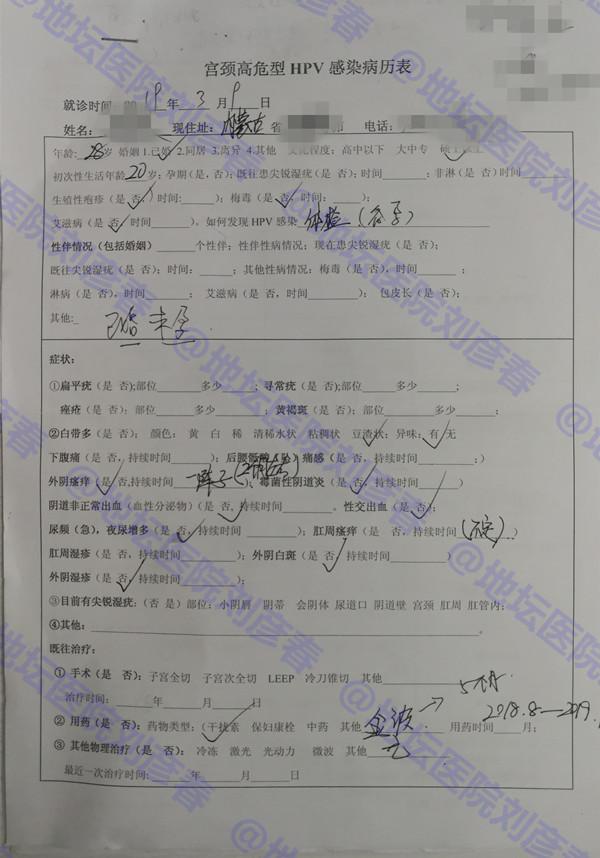 宫颈高危型 HPV 感染病历表
就诊时间: 2019年3月9日
姓名: 现住址: 内蒙古省 市 电话:
年龄:28岁 婚姻 1.已婚 2.同居 3.离异 4.其他 文化程度:高中以下 大中专 硕士以上
初次性生活年龄20岁;孕期(是,否);既往患尖锐湿疣(是 否);时间 ;非淋(是 否)时间
生殖性疱疹(是 否)时间: );梅毒(是 否,时间: );
艾滋病(是 否,时间 )。如何发现HPV感染 体检(备孕)
性伴情况(包括婚姻) 个性伴;性伴性病情况:现在患尖锐湿疣(是 否);
既往尖锐湿疣(是 否);时间: ;其他性病情况:梅毒(是 否),时间 ;
淋病(是 否),时间 ; 艾滋病(是 否,时间 ); 包皮长(是 否);
其他: 已婚 未孕
症状:
①扁平疣(是 否);部位 多少 ;寻常疣(是 否);部位 多少 ;
痤疮(是 否);部位 多少 ;黄褐斑(是 否);部位 多少 ;
②白带多(是 否); 颜色: 黄 白 稀 清稀水状 粘稠状 豆渣状;异味:有 无
下腹痛(是 否,持续时间 );后腰骶酸(坠)痛感(是 否,持续时间: )
外阴瘙痒(是 否,持续时间 一阵子 );霉菌性阴道炎(是 否,持续时间 )
阴道非正常出血(血性分泌物)(是 否,持续时间 。性交出血(是 否);
尿频(急),夜尿增多(是 否,持续时间 );肛周瘙痒(是 否,持续时间 )
肛周湿疹(是 否,持续时间 );外阴白斑(是 否,持续时间 )
外阴湿疹(是 否,持续时间 );
③目前有尖锐湿疣:(否 是)部位:小阴唇 阴蒂 会阴体 尿道口 阴道壁 宫颈 肛周 肛管内;
④其他: 。
既往治疗:
① 手术(是 否):子宫全切 子宫次全切 LEEP 冷刀锥切 其他
治疗时间: 年 月 日
② 用药(是 否):药物类型:(干扰素 保妇康栓 中药 其他 金波 → 用药时间 月; 2018.8—2019.
③ 其他物理治疗(是 否): 冷冻 激光 光动力 微波 其他 无
最近一次治疗时间: 年 月 日
@地坛医院刘彦春